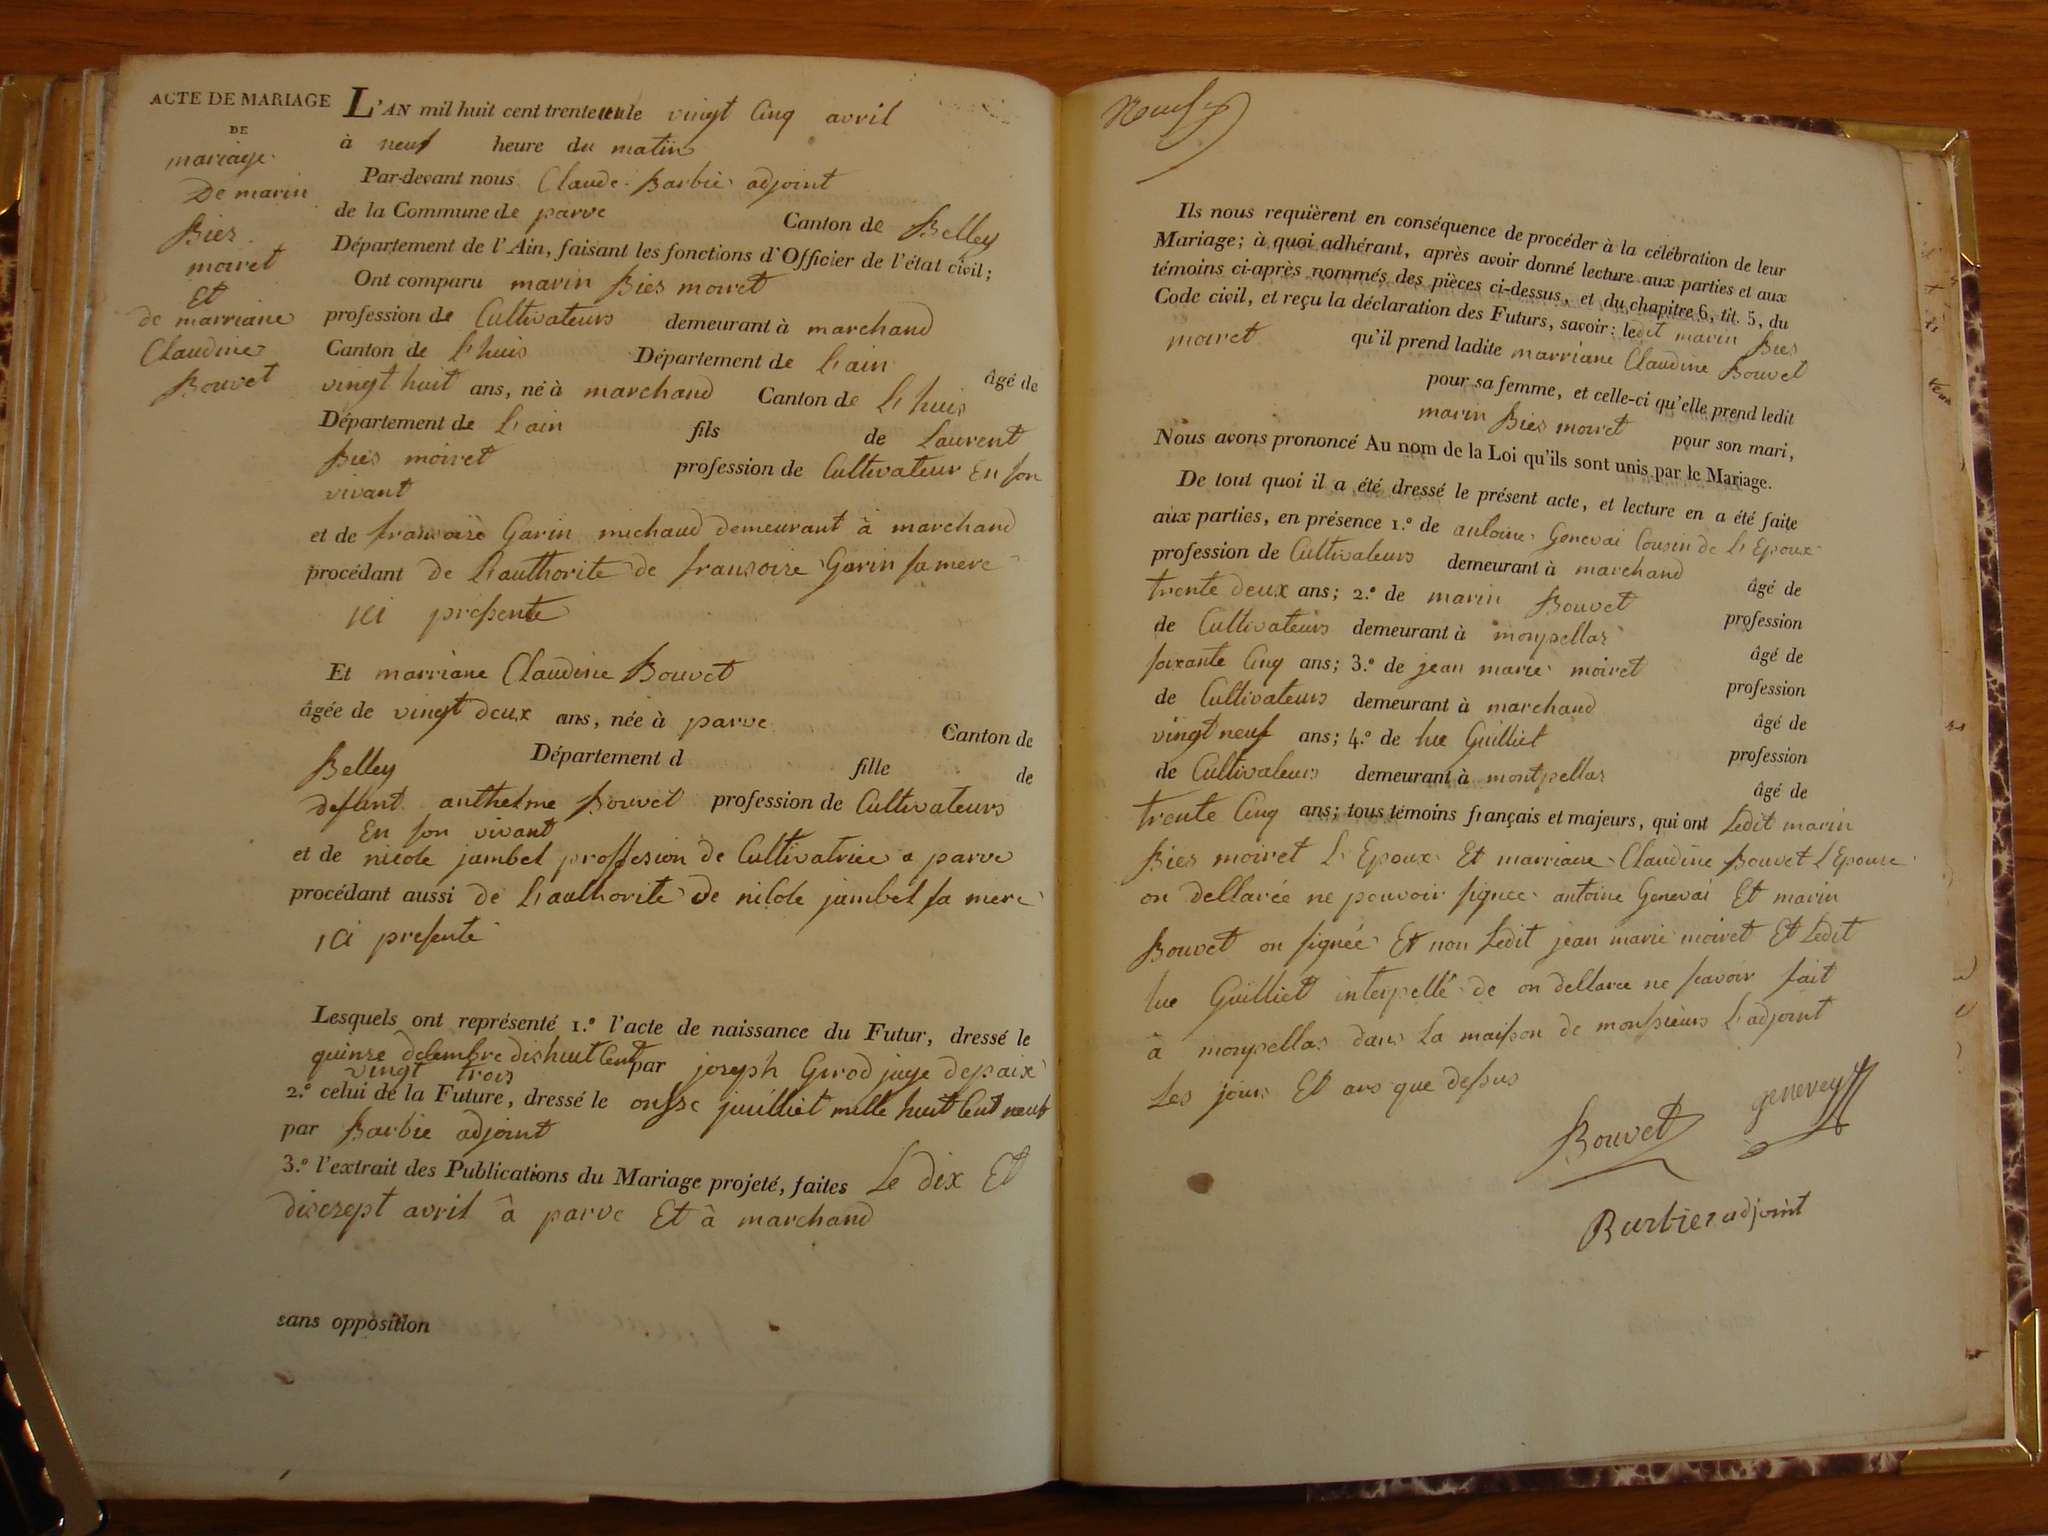 ACTE DE MARIAGE
DE
mariage
De marin
Bies
moiret
Et
de marriane
Claudine
Bouvet
L'AN mil huit cent trente un le vingt Cinq avril
à neuf heure du matin
Par-devant nous Claude Barbie adjoint
de la Commune de parve Canton de Belley
Département de l'Ain, faisant les fonctions d'Officier de l'état civil;
Ont comparu marin Bies moiret
profession de Cultivateurs demeurant à marchand
Canton de L'huis Département de L'ain âgé de
vingt huit ans, né à marchand Canton de L'huis
Département de L'ain fils de Laurent
Bies moiret profession de Cultivateur En son
vivant
et de fransoise Garin michaud demeurant à marchand
procédant de L'authorite de fransoise Garin sa mere
ici presente
Et marriane Claudine Bouvet
âgée de vingt deux ans, née à parve Canton de
Belley Département d fille de
defunt anthelme Bouvet profession de Cultivateurs
En son vivant
et de nicole jambet proffesion de Cultivatrice a parve
procédant aussi de L'authorite de nicole jambet sa mere
ici presente
Lesquels ont représenté 1.º l'acte de naissance du Futur, dressé le
quinse decembre dishuit Cent par joseph Girod juge depaix
vingt trois
2.º celui de la Future, dressé le onsse juilliet mille huit Cent neuf
par Barbie adjoint
3.º l'extrait des Publications du Mariage projeté, faites Le dix Et
discsept avril à parve Et à marchand
sans opposition
Ils nous requièrent en conséquence de procéder à la célébration de leur
Mariage; à quoi adhérant, après avoir donné lecture aux parties et aux
témoins ci-après nommés des pièces ci-dessus, et du chapitre 6, tit. 5, du
Code civil, et reçu la déclaration des Futurs, savoir: ledit marin Bies
moiret qu'il prend ladite marriane Claudine Bouvet
pour sa femme, et celle-ci qu'elle prend ledit
marin Bies moiret pour son mari,
Nous avons prononcé Au nom de la Loi qu'ils sont unis par le Mariage.
De tout quoi il a été dressé le présent acte, et lecture en a été faite
aux parties, en présence 1.º de antoine Genevai Cousin de L'Epoux
profession de Cultivateurs demeurant à marchand âgé de
trente deux ans; 2.º de marin Bouvet profession
de Cultivateurs demeurant à monpellas âgé de
soixante Cinq ans; 3.º de jean marie moiret profession
de Cultivateurs demeurant à marchand âgé de
vingt neuf ans; 4.º de luc Guilliet profession
de Cultivateurs demeurant à montpellas âgé de
trente Cinq ans; tous témoins français et majeurs, qui ont Ledit marin
Bies moiret L'Epoux Et marriane Claudine Bouvet L'Epouse
on dellarée ne pouvoir signee antoine Genevai Et marin
Bouvet on signée Et non Ledit jean marie moiret Et Ledit
luc Guilliet interpellé de on dellaree ne savoir fait
à monpellas dans La maison de monssieurs L'adjoint
Les jours Et ans que dessus
Bouvet genevey
Barbier adjoint